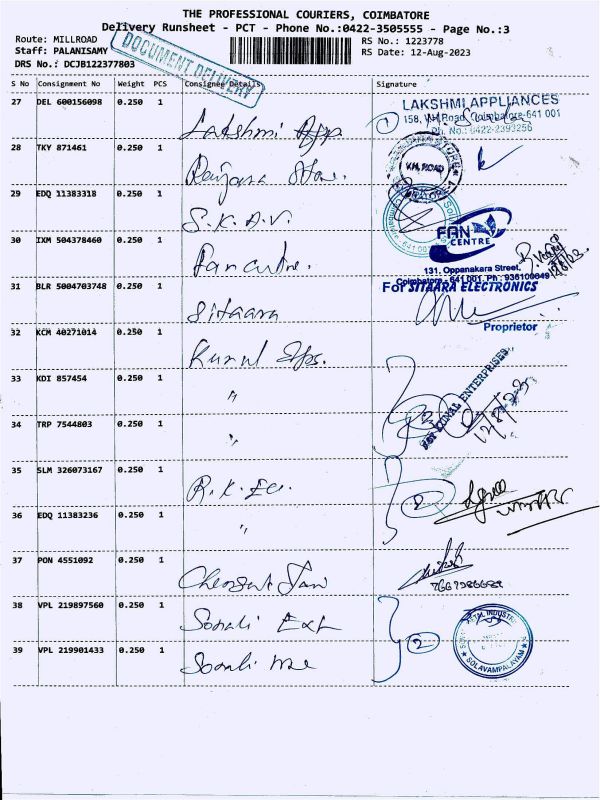 THE PROFESSIONAL COURIERS, COIMBATORE
Delivery Runsheet - PCT - Phone No.:0422-3505555 - Page No.:3
Route: MILLROAD
RS No.: 1223778
Staff: PALANISAMY
RS Date: 12-Aug-2023
DRS No.: DCJB122377803
DOCUMENT DELIVERY
S No Consignment No Weight PCS Consignee Details Signature
27 DEL 600156098 0.250 1 Lakshmi App
LAKSHMI APPLIANCES
158, V.H.Road, Coimbatore-641 001
Ph. No.: 0422-2393256
28 TKY 871461 0.250 1
V.H. ROAD
29 EDQ 11383318 0.250 1 S.K.A.V.
30 IXM 504378460 0.250 1 Fan centre.
FAN
CENTRE
131, Oppanakara Street,
Coimbatore - 641 001. Ph : 936100649
31 BLR 5004703748 0.250 1 Sitaara
For SITAARA ELECTRONICS
Proprietor
32 KCM 40271014 0.250 1 Kunal
33 KDI 857454 0.250 1 "
For KUNAL ENTERPRISES
12/8/23
34 TRP 7544803 0.250 1 "
2
35 SLM 326073167 0.250 1 R.K.
2
36 EDQ 11383236 0.250 1 "
37 PON 4551092 0.250 1
38 VPL 219897560 0.250 1 Sonali
2
SOLAVAMPALAYAM
39 VPL 219901433 0.250 1 Sonali